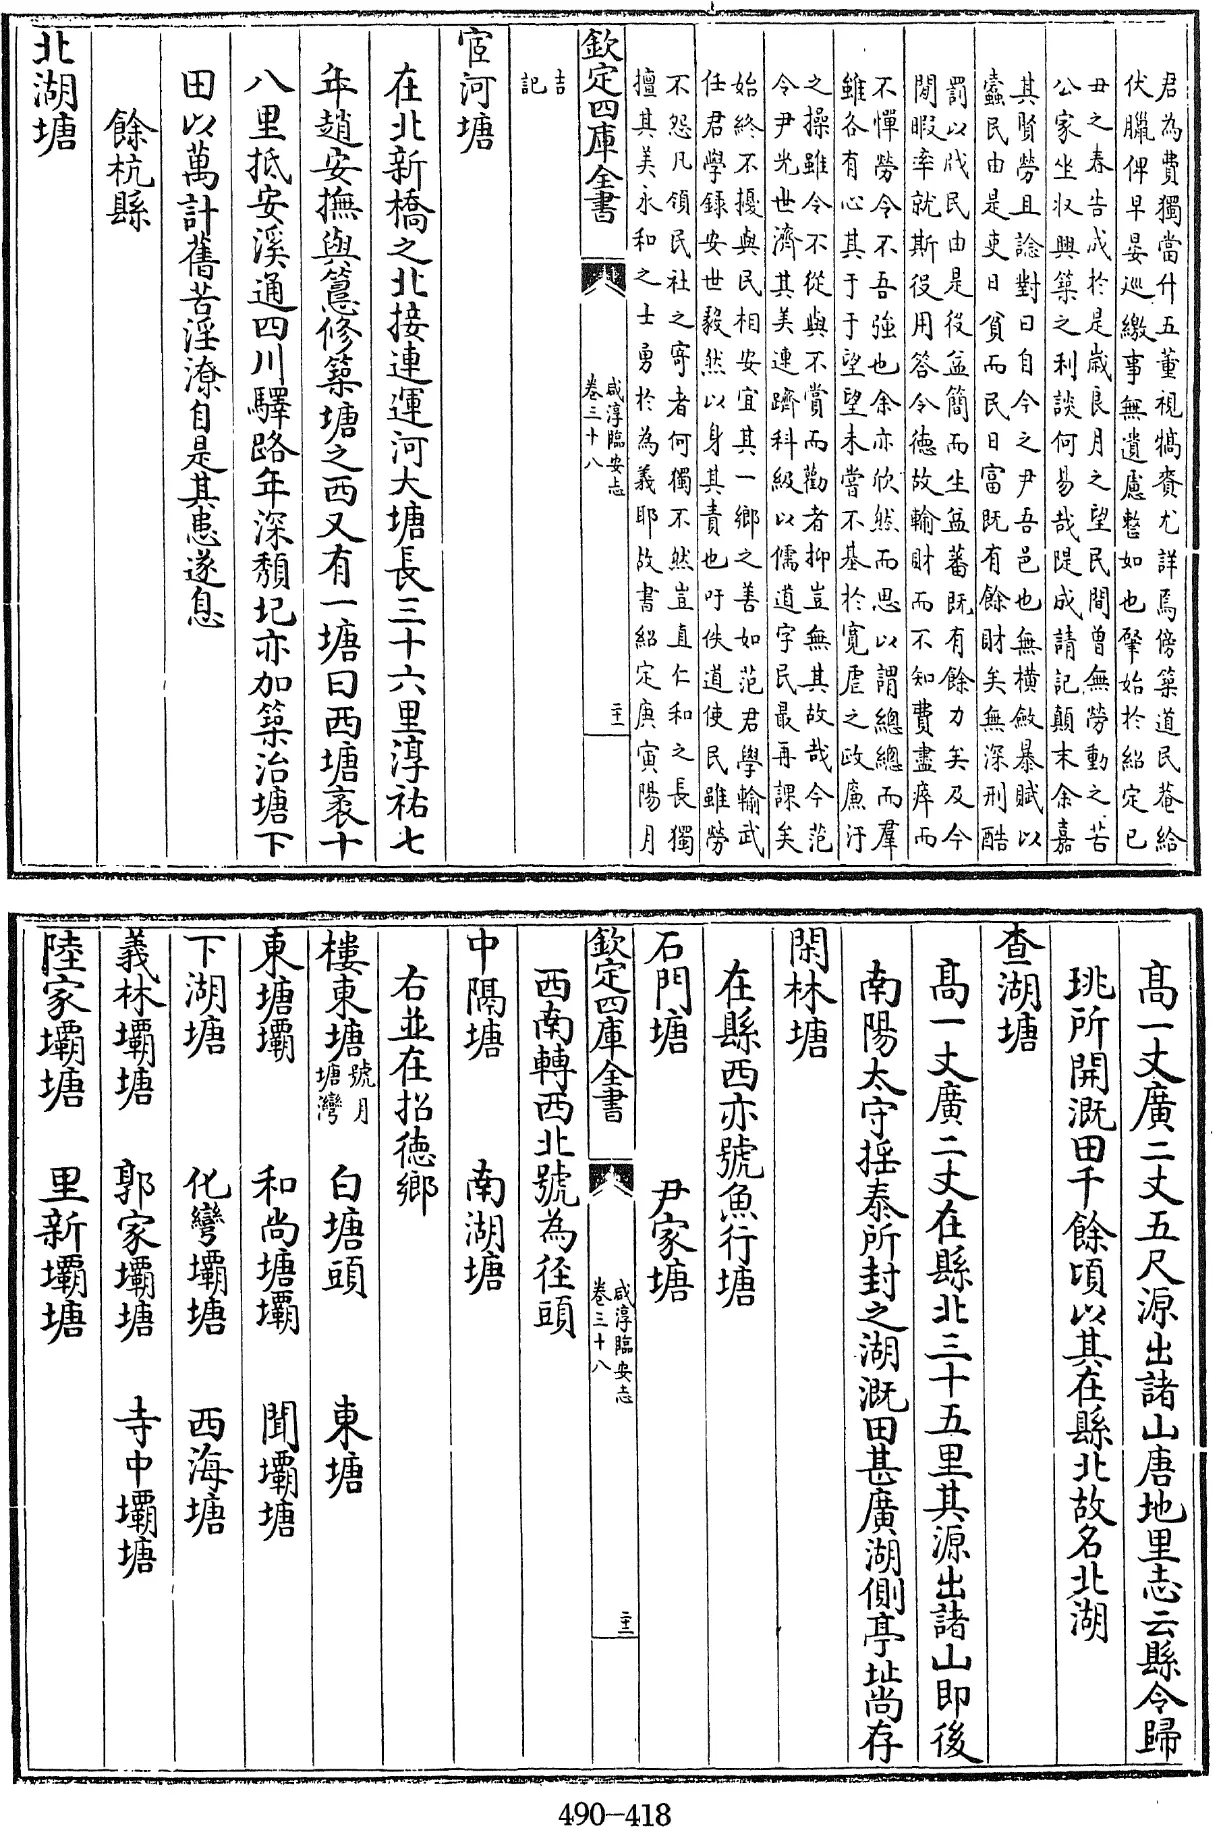 君為費獨當什五董視犒賚尤詳焉傍築道民菴給
伏臘俾早晏巡繳事無遺慮整如也肇始於紹定已
丑之春告成於是歳良月之望民間曾無勞動之苦
公家坐収興築之利談何易哉隄成請記顛末余嘉
其賢勞且諗對曰自今之尹吾邑也無橫斂暴賦以
蠧民由是吏日貧而民日富既有餘財矣無深刑酷
罰以戕民由是役益簡而生益蕃既有餘力矣及今
閒暇率就斯役用答令徳故輸財而不知費盡瘁而
不憚勞令不吾強也余亦欣然而思以謂總總而羣
雖各有心其于于望望未嘗不基於寛虐之政廉汙
之操雖令不從與不賞而勸者抑豈無其故哉今范
令尹光世濟其美連躋科級以儒道字民最再課矣
始終不擾與民相安宜其一鄉之善如范君學諭武
任君學録安世毅然以身其責也吁佚道使民雖勞
不怨凡領民社之寄者何獨不然豈直仁和之長獨
擅其美永和之士勇於為義耶故書紹定庚寅陽月
吉
記
欽定四庫全書
咸淳臨安志
卷三十八
宦河塘
在北新橋之北接連運河大塘長三十六里淳祐七
年趙安撫與𥲅修築塘之西又有一塘曰西塘袤十
八里抵安溪通四川驛路年深頽圮亦加築治塘下
田以萬計舊苦淫潦自是其患遂息
餘杭縣
北湖塘
髙一丈廣二丈五尺源出諸山唐地里志云縣令歸
珧所開溉田千餘頃以其在縣北故名北湖
查湖塘
髙一丈廣二丈在縣北三十五里其源出諸山即後
南陽太守揺泰所封之湖溉田甚廣湖側亭址尚存
閑林塘
在縣西亦號魚行塘
石門塘 尹家塘
欽定四庫全書
咸淳臨安志
卷三十八
西南轉西北號為徑頭
中隔塘 南湖塘
右並在招徳鄉
樓東塘號月塘灣 白塘頭 東塘
東塘壩 和尚塘壩 聞壩塘
下湖塘 化彎壩塘 西海塘
義林壩塘 郭家壩塘 寺中壩塘
陸家壩塘 里新壩塘
490-418